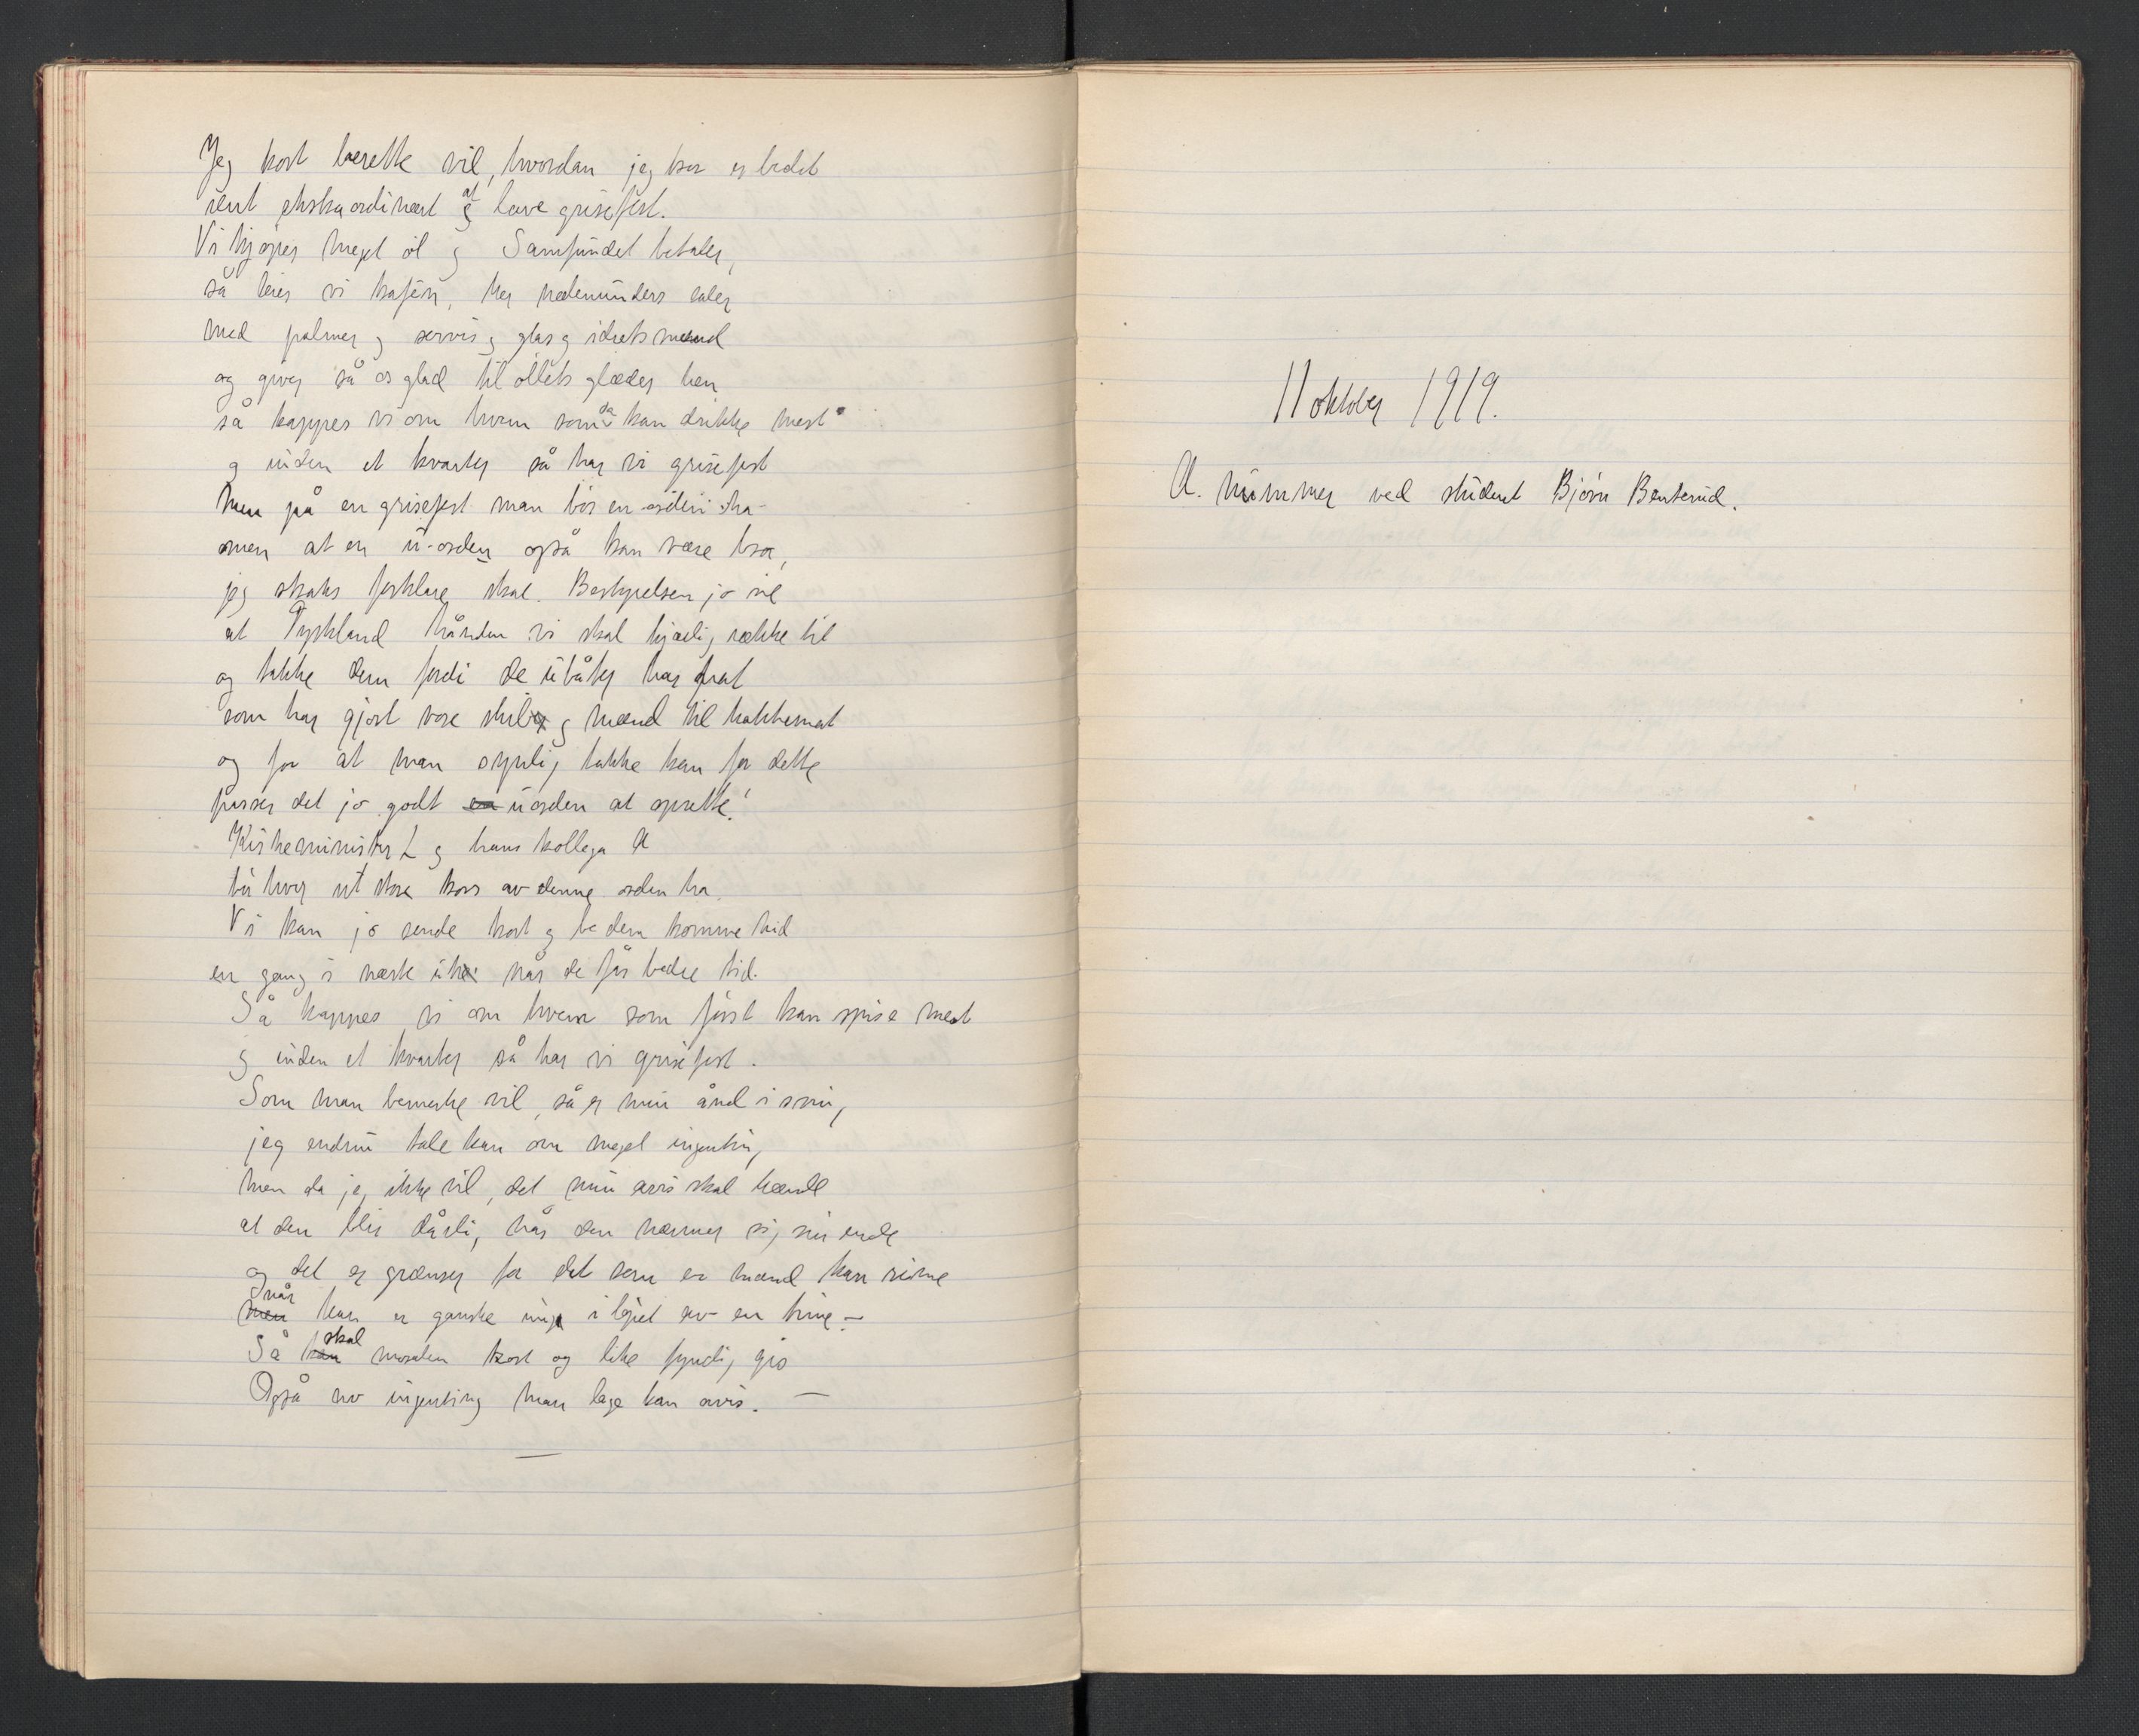 Jeg kort berette vil, hvordan jeg har er bedst
rent ekstraordinært at lave grisefest.
Vi kjøper meget øl og Samfundet betaler,
så leier vi kaféen, her nedenunders saler
med palmer og servis og glas og idrætsmænd
og giver så os glad til øllets glæder hen
så kappes vi om hvem som da kan drikke mest
og inden et kvarter så har vi grisefest
Men på en grisefest man bør en orden ha
men at en u-orden også kan være bra,
jeg straks forklare skal. Bestyrelsen jo vil
at Tyskland hånden vi skal kjærlig række til
og takke dem fordi de ubåter har hat
som har gjort vore skuter og mænd til hakkemat
og for at man synlig takke kan for dette
passer det jo godt en uorden at oprette!
Kirkeminister L og hans kollega A
bør hver et store kors av denne orden ha.
Vi kan jo sende kort og be dem komme hid
en gang i næste uke når de får bedre tid.
Så kappes vi om hvem som først kan spise mest
og inden et kvarter så har vi grisefest.
Som man bemerke vil, så er min ånd i sving,
jeg endnu tale kan om meget ingenting,
men da jeg ikke vil, det min avis skal hænde
at den blir dårlig, når den nærmer sig sin ende
og det er grænser for det som en mand kan rime
når han er ganske ung i løpet av en time –
Så skal moralen kort og like fyndig gis
Også av ingenting man lage kan avis. –
11 oktober 1919.
A. nummer ved student Bjørn Benterud.